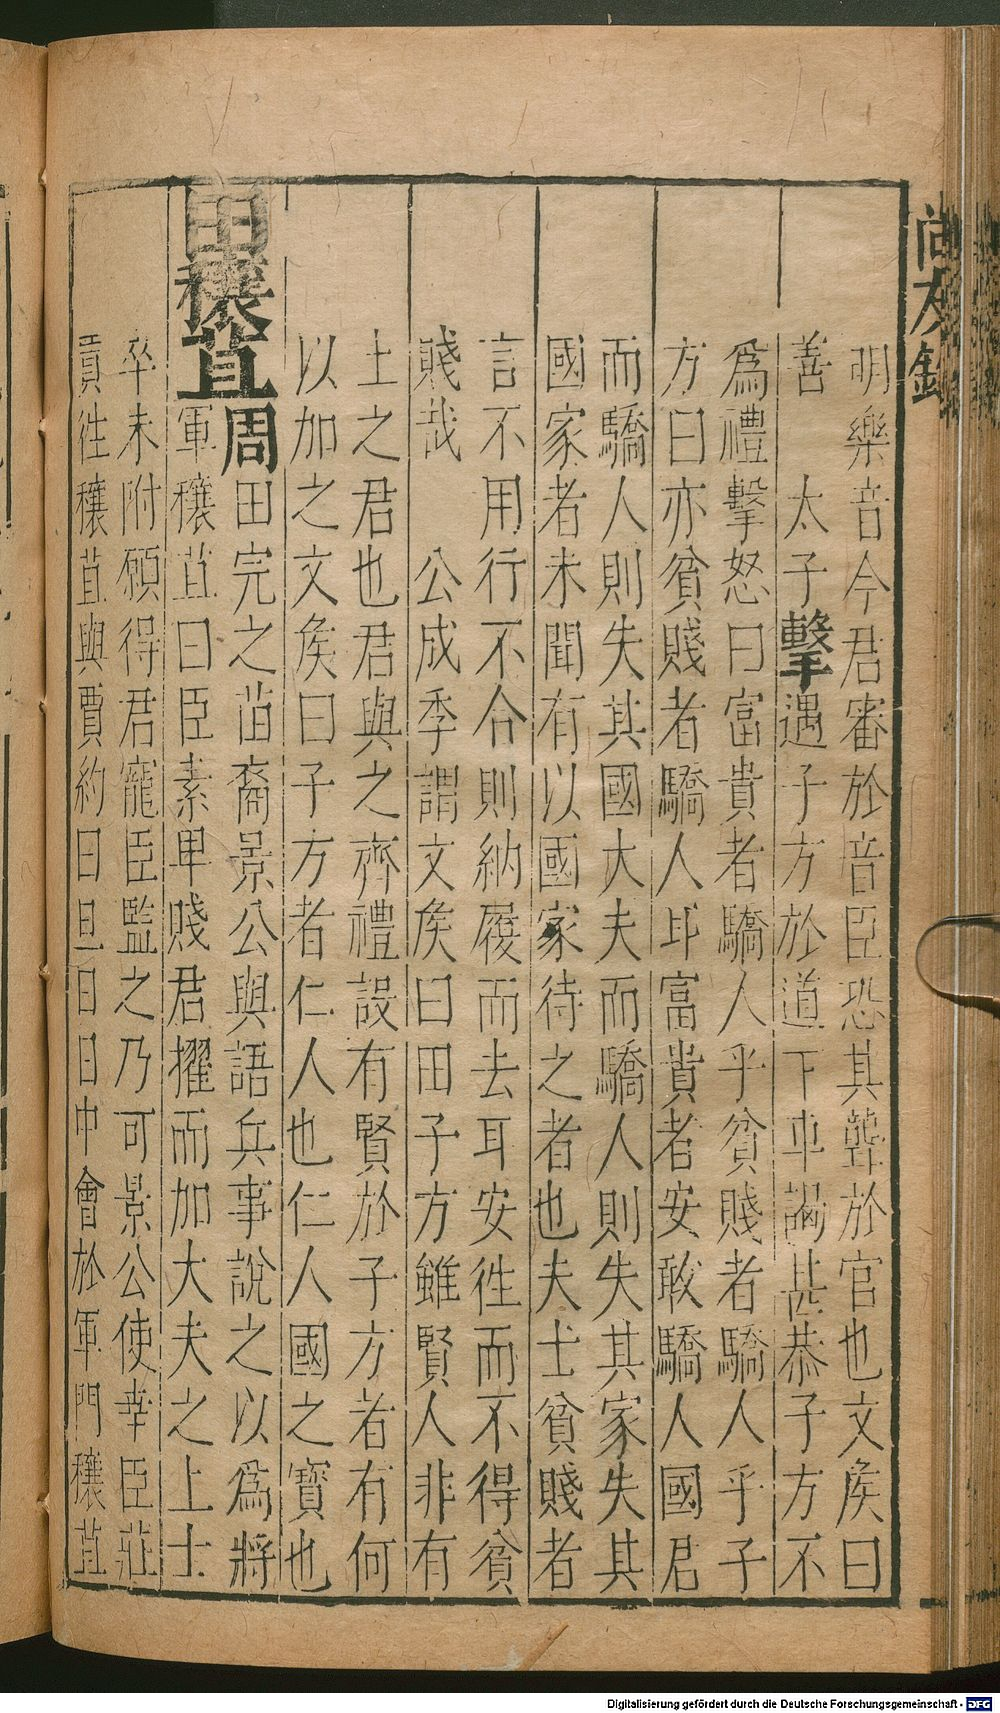 尚友錄
明樂音今君審於音臣恐其聾於官也文侯曰
善　太子擊遇子方於道下車謁甚恭子方不
爲禮擊怒曰富貴者驕人乎貧賤者驕人乎子
方曰亦貧賤者驕人耳富貴者安敢驕人國君
而驕人則失其國大夫而驕人則失其家失其
國家者未聞有以國家待之者也夫士貧賤者
言不用行不合則納履而去耳安徃而不得貧
賤哉　公成季謂文侯曰田子方雖賢人非有
土之君也君與之齊禮設有賢於子方者有何
以加之文侯曰子方者仁人也仁人國之寶也
田穰苴周田完之苗裔景公與語兵事說之以爲將
軍穰苴曰臣素卑賤君擢而加大夫之上士
卒未附願得君寵臣監之乃可景公使幸臣莊
賈徃穰苴與賈約曰旦日日中會於軍門穰苴
Digitalisierung gefördert durch die Deutsche Forschungsgemeinschaft - DFG